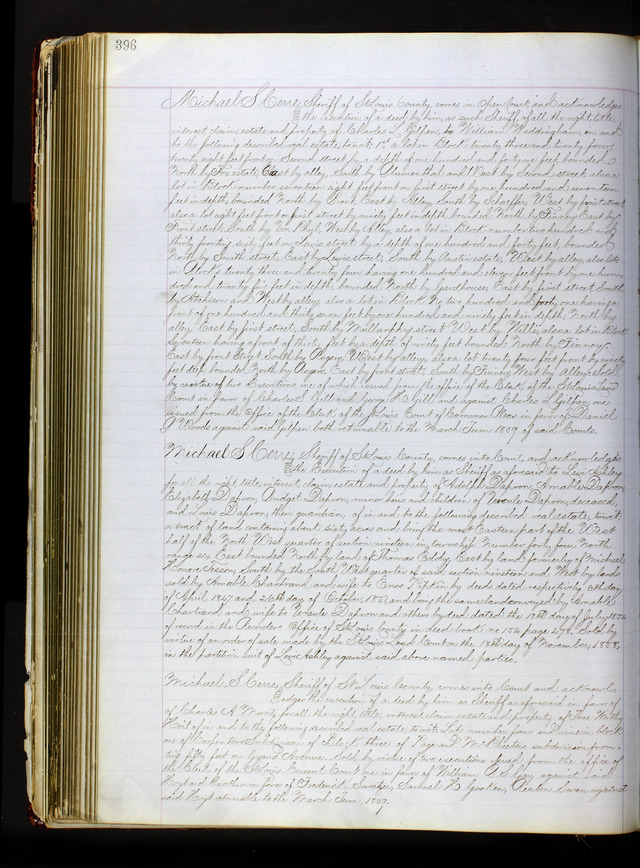 396
Michael S Cerre, Sheriff of St Louis County, comes in Open Court, and acknowledges
the execution of a deed by him as such Sheriff of all the right, title,
interest, claim, estate and property of Charles L Gilpin, to William Waddingham, on and
to the following described real estate, towit, 1st a lot in Block twenty three and twenty four,
twenty eight feet front on Second street by a depth of one hundred and forty one feet, bounded
North by estate, East by alley, South by Blumenthal and West by Second street, also a
lot in Block number seventeen eight feet front on first street by one hundred and seventeen
feet in depth, bounded North by East by Alley, South by Schaeffer, West by first street,
also a lot eight feet front on first street by ninety feet in depth bounded North by Finney East by
Front street, South by West by Alley, also a lot in Block number two hundred and
thirty fronting feet on Lewis street by a depth of one hundred and forty feet, bounded
North by Smith street, East by Lewis street, South by Austin estate, West by alley, also lots
in Blocks twenty three and twenty four having one hundred and eleven feet front by one hun-
dred and twenty feet in depth, bounded North by East by first street, South
by Atchison and West by alley, also a lot in Block No two hundred and forty one having a
front of one hundred and thirty seven feet by one hundred and ninety feet in depth, North by
alley, East by first street, South by Mullanphy street West by Willi, also a lot in Block
Seventeen having a front of thirty feet by a depth of ninety feet bounded North by Finney,
East by front Street South by Rogan, West by alley, also a lot twenty four feet front by ninety
feet deep bounded North by Rogan, East by front street, South by Finney West by Alley. Sold
by virtue of two Executions one of which issued from the office of the Clerk of the St Louis
Court in favor of Charles S Gill and George H Gill and against Charles L Gilpin, one
issued from the Office of the Clerk of the St Louis Court of Common Pleas in favor of Daniel
A Woods against said Gilpin both returnable to the March Term 1859 of said Courts.
Michael S Cerre, Sheriff of St Louis County, comes into Court, and acknowledges
the Execution of a deed by him as Sheriff as aforesaid to Levi Ashley
for all the right, title, interest, claim, estate and property of Adolph Dafron, Amable Dafron,
Elizabeth Dafron, Bridget Dafron, minor heirs and children of Dafron, deceased,
and Louis Dafron, their guardian, of in and to the following described real estate, towit,
a tract of land containing about sixty acres and being the most Eastern part of the West
half of the North West quarter of section nineteen in township Number forty four North
range six East bounded North by land of Thomas Eddy, East by land formerly of Michael
Honore Tesson, South by the South West quarter of said section nineteen and West by land
sold by Amable Chartrand and wife to Enos by deeds dated respectively 6th day
of April 1847 and 26th day of October 1851, and being the same land conveyed by Amable
Chartrand and wife to Dafron and others by deed dated the 18th day of July 1854
of record in the Recorder's Office of St Louis County in deed book no 154 page 278. Sold by
virtue of an order of sale made by the St Louis Land Court on the 18th day of November, 1858,
in the partition suit of Levi Ashley against said above named parties.
Michael S Cerre, Sheriff of St Louis County comes into Court and acknowl-
edges the execution of a deed by him as Sheriff as aforesaid in favor of
of Charles A Mantz, for all the right, title, interest, claim, estate and property, of
Hoit of in and to the following described real estate towit: Lots number four and nine in block
one of Carpenters Subdivision of Block three of Page and McPhetters subdivision fron-
ting fifty feet on Avenue. Sold by virtue of two executions issued from the office of
the Clerk of the St Louis Circuit Court one in favor of William A S Gay against said
Hoyt and the other in favor of Frederick Sweetzer, Samuel H Gookin, Reuben Swan against
said Hoyt returnable to the March Term, 1859.